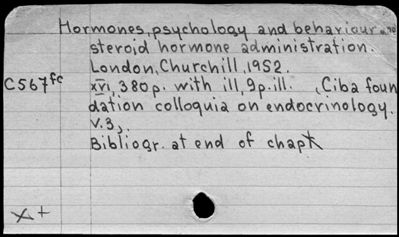 Hormones, psychology and behaviour and
steroid hormone administration.
London, Churchill, 1952.
C567fc xvi, 380p. with ill, 9p. ill. (Ciba foun
dation colloquia on endocrinology.
V.3).
Bibliogr. at end of chapt
x+